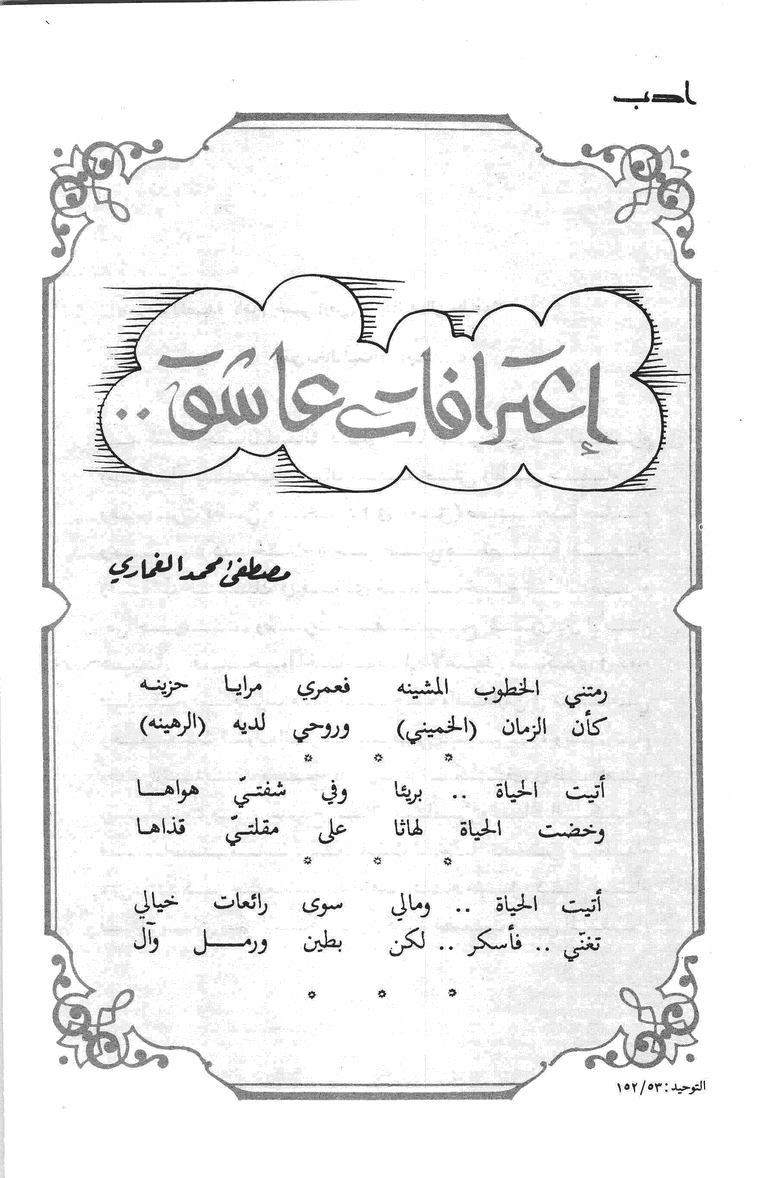 ادب
إعترافات عاشق ..
مصطفى محمد الغماري
رمتني الخطوب المشينه فعمري مرايا حزينه
كأن الزمان (الخميني) وروحي لديه (الرهينه)
* * *
أتيت الحياة .. بريئا وفي شفتيّ هواهـا
وخضت الحياة لهاثا على مقلتـيّ قذاهـا
* * *
أتيت الحياة .. ومالي سوى رائعات خيالي
تغنّي .. فأسكر .. لكن بطين ورمـل وآل
* * *
التوحيد : ٥٣ / ١٥٢